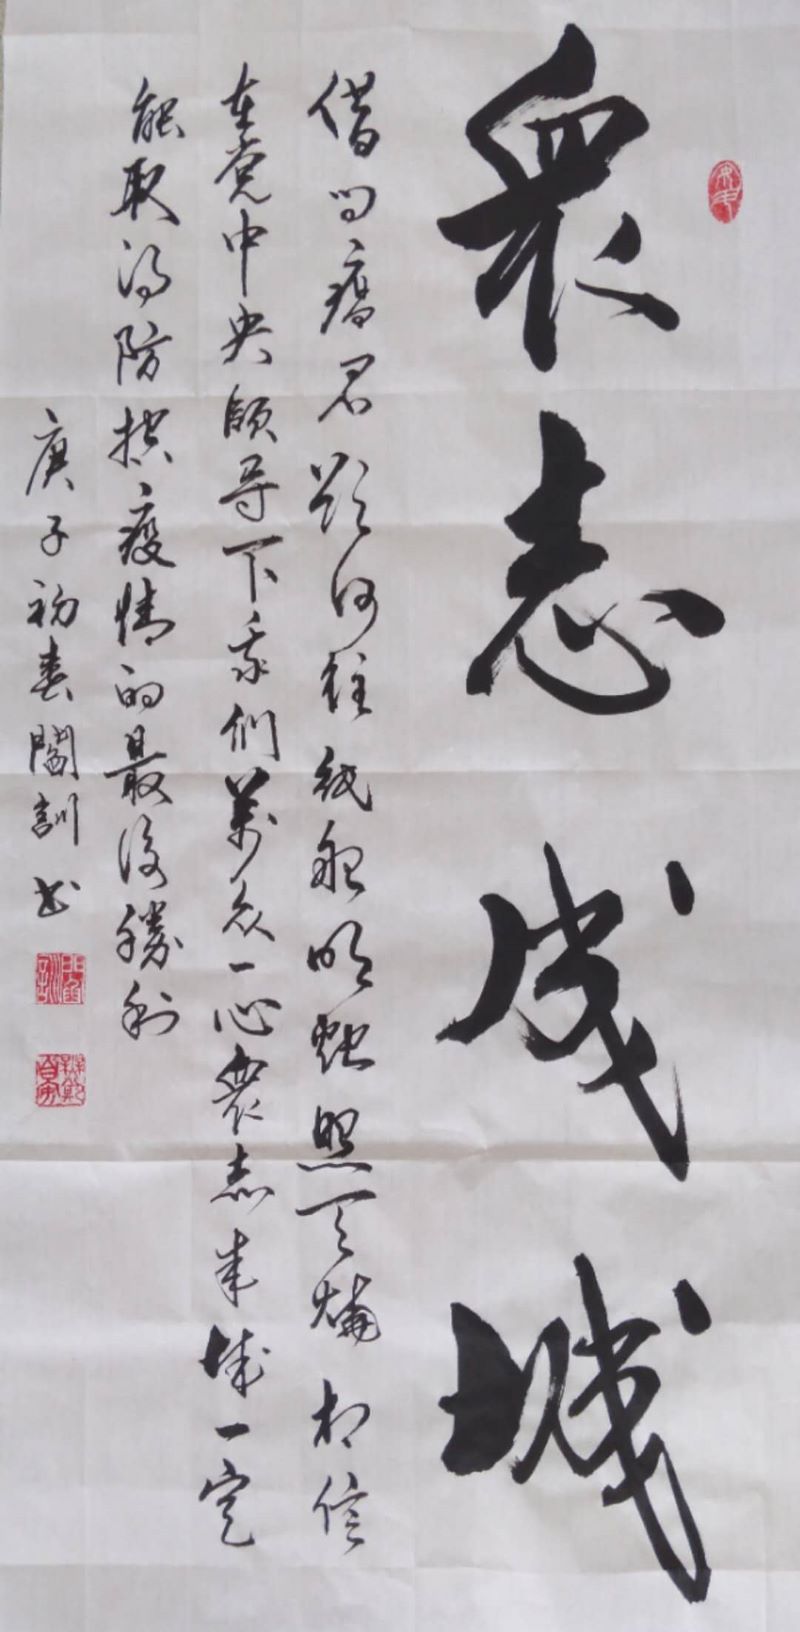 衆志成城
借问瘟君欲何往纸船明烛照天烧相信
在党中央领导下我们萬众一心衆志成城一定
能取得防控疫情的最後勝利
庚子初春閻訓书